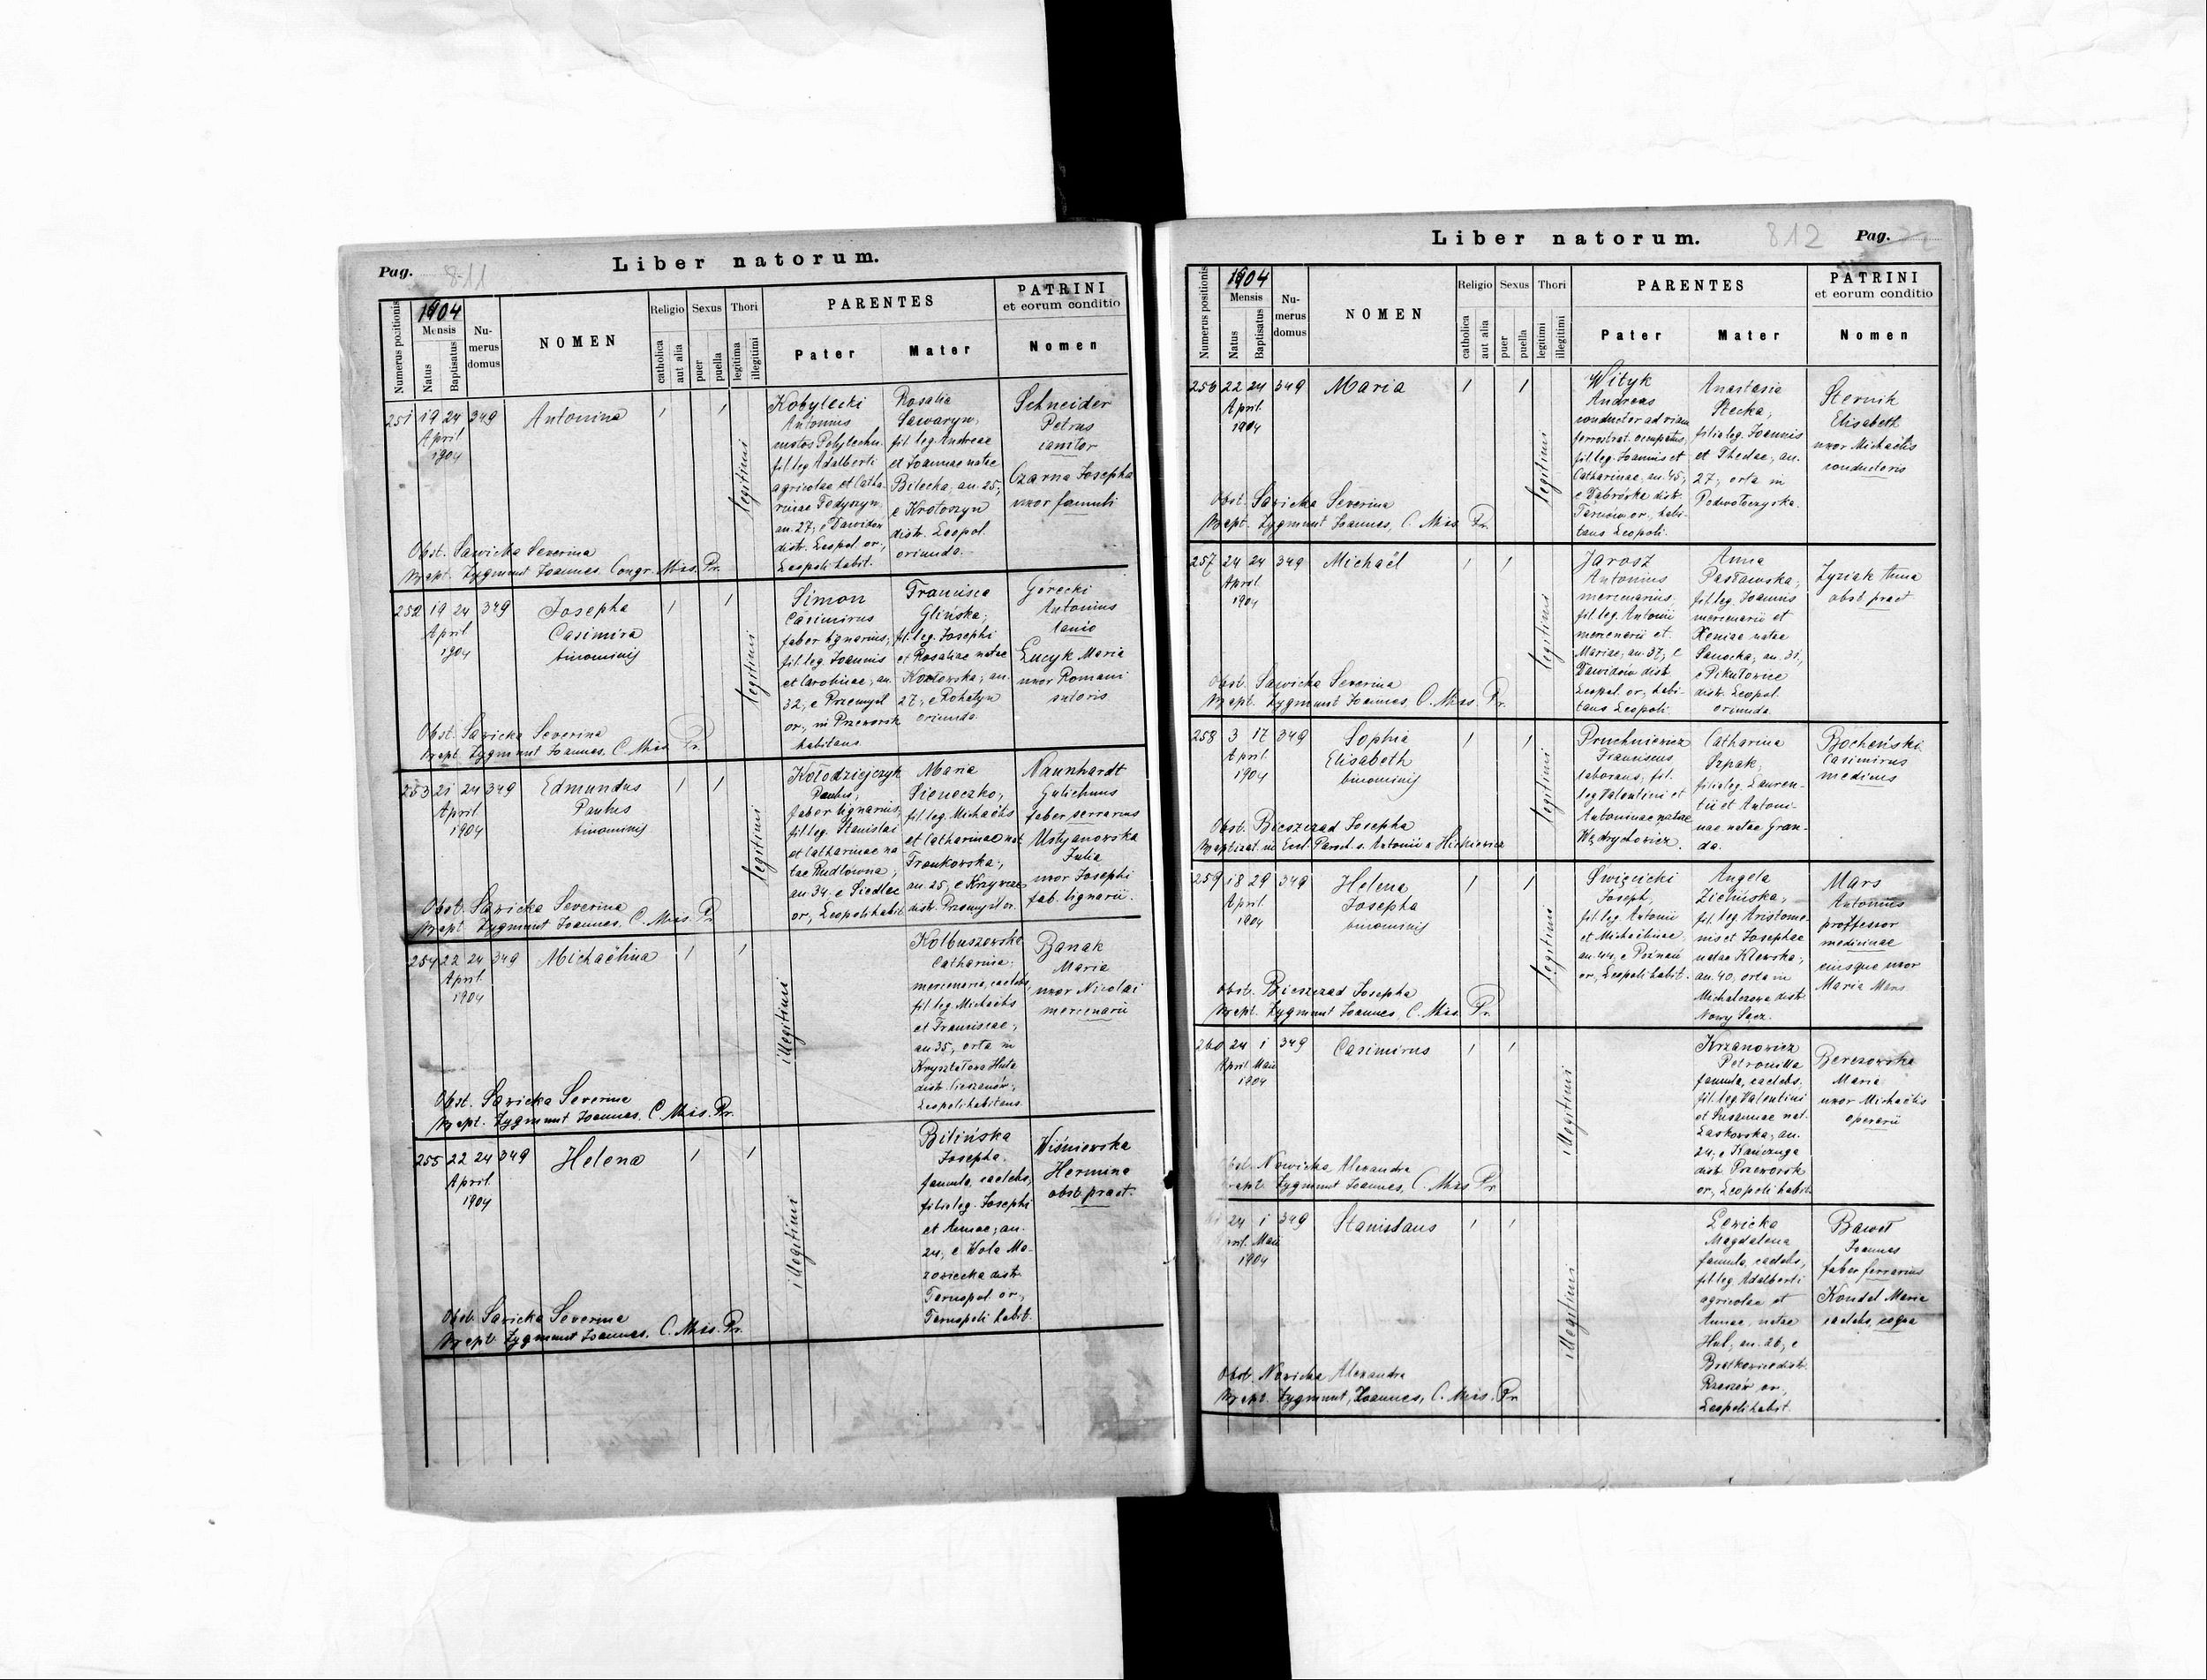 Pag. 811
Liber natorum.
Numerus positionis
1904
Mensis
Natus
Baptisatus
Nu-
merus
domus
NOMEN
Religio
catholica
aut alia
Sexus
puer
puella
Thori
legitima
illegitimi
PARENTES
Pater
Mater
PATRINI
et eorum conditio
Nomen
251 19 24 349 Antonina
April
1904
legitimi
Kobylecki
Antonius
custos Polytechn.
fil. leg. Adalberti
agricolae et Catha-
rinae Fedyszyn
an. 27, e Dawidow
distr. Leopol. or.,
Leopoli habit.
Rosalia
Sawaryn,
fil. leg. Andreae
et Joannae natae
Bilecka, an. 25,
e Krotoszyn
distr. Leopol.
oriunda.
Schneider
Petrus
ianitor
Czarna Josepha
uxor famuli
Obst. Sawicka Severina
Bapt. Zygmunt Joannes, Congr. Miss. Pr.
252 19 24 349 Josepha
April
1904
Casimira
binominis
legitimi
Simon
Casimirus
faber lignarius,
fil. leg. Joannis
et Carolinae, an.
32, e Przemysl
or., in Przeworsk
habitans
Francisca
Glińska,
fil. leg. Josephi
et Rosaliae natae
Kozłowska, an.
27, e Rohatyn
oriunda.
Górecki
Antonius
lanio
Łucyk Maria
uxor Romani
sutoris
Obst. Sawicka Severina
Bapt. Zygmunt Joannes, C. Miss. Pr.
253 21 24 349 Edmundus
April
1904
Paulus
binominis
legitimi
Kołodziejczyk
Paulus,
faber lignarius,
fil. leg. Stanislai
et Catharinae na-
tae Rudłówna,
an. 34, e Siedlec
or., Leopoli habit.
Maria
Sieneczko,
fil. leg. Michaëlis
et Catharinae nat.
Frankowska,
an. 25, e Krzywcze
distr. Przemysl or.
Naunhardt
Gulielmus
faber ferrarius
Ustyanowska
Julia
uxor Josephi
fab. lignarii.
Obst. Sawicka Severina
Bapt. Zygmunt Joannes, C. Miss. Pr.
254 22 24 349 Michaëlina
April
1904
illegitimi
Kolbuszewska
Catharina,
mercenaria, caelebs,
fil. leg. Michaëlis
et Franciscae,
an. 35, orta in
Kryształowa Huta
distr. Cieszanów,
Leopoli habitans.
Banak
Maria
uxor Nicolai
mercenarii
Obst. Sawicka Severina
Bapt. Zygmunt Joannes, C. Miss. Pr.
255 22 24 349 Helena
April
1904
illegitimi
Bilińska
Josepha,
famula, caelebs,
filia leg. Josephi
et Annae, an.
24, e Wola Ma-
zowiecka distr.
Tarnopol. or.,
Tarnopoli habit.
Wiśniewska
Hermina
obst. praet.
Obst. Sawicka Severina
Bapt. Zygmunt Joannes, C. Miss. Pr.
Liber natorum.
812
Pag.
Numerus positionis
1904
Mensis
Natus
Baptisatus
Nu-
merus
domus
NOMEN
Religio
catholica
aut alia
Sexus
puer
puella
Thori
legitimi
illegitimi
PARENTES
Pater
Mater
PATRINI
et eorum conditio
Nomen
256 22 24 349 Maria
April
1904
legitimi
Wityk
Andreas
conductor ad viam
ferrostrat. occupatus,
fil. leg. Joannis et
Catharinae, an. 45,
e Dąbrówka distr.
Tarnów or., habi-
tans Leopoli.
Anastasia
Stecka,
filia leg. Joannis
et Theclae, an.
27, orta in
Podwołoczyska.
Sternik
Elisabeth
uxor Michaëlis
conductoris
Obst. Sawicka Severina
Bapt. Zygmunt Joannes, C. Miss. Pr.
257 24 24 349 Michaël
April
1904
legitimi
Jarosz
Antonius
mercenarius,
fil. leg. Antonii
mercenarii et
Mariae, an. 37, e
Dawidów distr.
Leopol. or., habi-
tans Leopoli.
Anna
Pasławska,
fil. leg. Joannis
mercenarii et
Xeniae natae
Sanocka, an. 31,
e Pikułowice
distr. Leopol.
oriunda.
Zyziak Anna
obst. praet.
Obst. Sawicka Severina
Bapt. Zygmunt Joannes, C. Miss. Pr.
258 3 17 349 Sophia
April
1904
Elisabeth
binominis
legitimi
Pruchniewicz
Franciscus
laborans, fil.
leg. Valentini et
Antoninae natae
Wędrychowicz.
Catharina
Szpak,
filia leg. Lauren-
tii et Antoni-
nae natae Gran-
da.
Bocheński
Casimirus
medicus
Obst. Bieszczad Josepha
Baptizat. in Eccl. Paroch. s. Antonii a Hickiewicz
259 18 29 349 Helena
April
1904
Josepha
binominis
legitimi
Święcicki
Joseph,
fil. leg. Antonii
et Michaëlinae,
an. 44, e Poznań
or., Leopoli habit.
Angela
Zielińska,
fil. leg. Aristome-
nis et Josephae
natae Klewska,
an. 40, orta in
Michalczowa distr.
Nowy Sącz.
Mars
Antonius
proffessor
medicinae
eiusque uxor
Maria Mars
Obst. Bieszczad Josepha
Bapt. Zygmunt Joannes, C. Miss. Pr.
260 24 1 349 Casimirus
April Maii
1904
illegitimi
Krzanowicz
Petronilla
famula, caelebs,
fil. leg. Valentini
et Susannae nat.
Laskowska, an.
24, e Kańczuga
distr. Przeworsk
or., Leopoli habit.
Berezowska
Maria
uxor Michaëlis
operarii
Obst. Nowicka Alexandra
Bapt. Zygmunt Joannes, C. Miss. Pr.
24 1 349 Stanislaus
April Maii
1904
illegitimi
Lewicka
Magdalena
famula, caelebs,
fil. leg. Adalberti
agricolae et
Annae, natae
Hul, an. 26, e
Bratkowice distr.
Rzeszów or.,
Leopoli habit.
Bawoł
Joannes
faber ferrarius
Kondel Maria
caelebs, coqua
Obst. Nowicka Alexandra
Bapt. Zygmunt, Joannes, C. Miss. Pr.